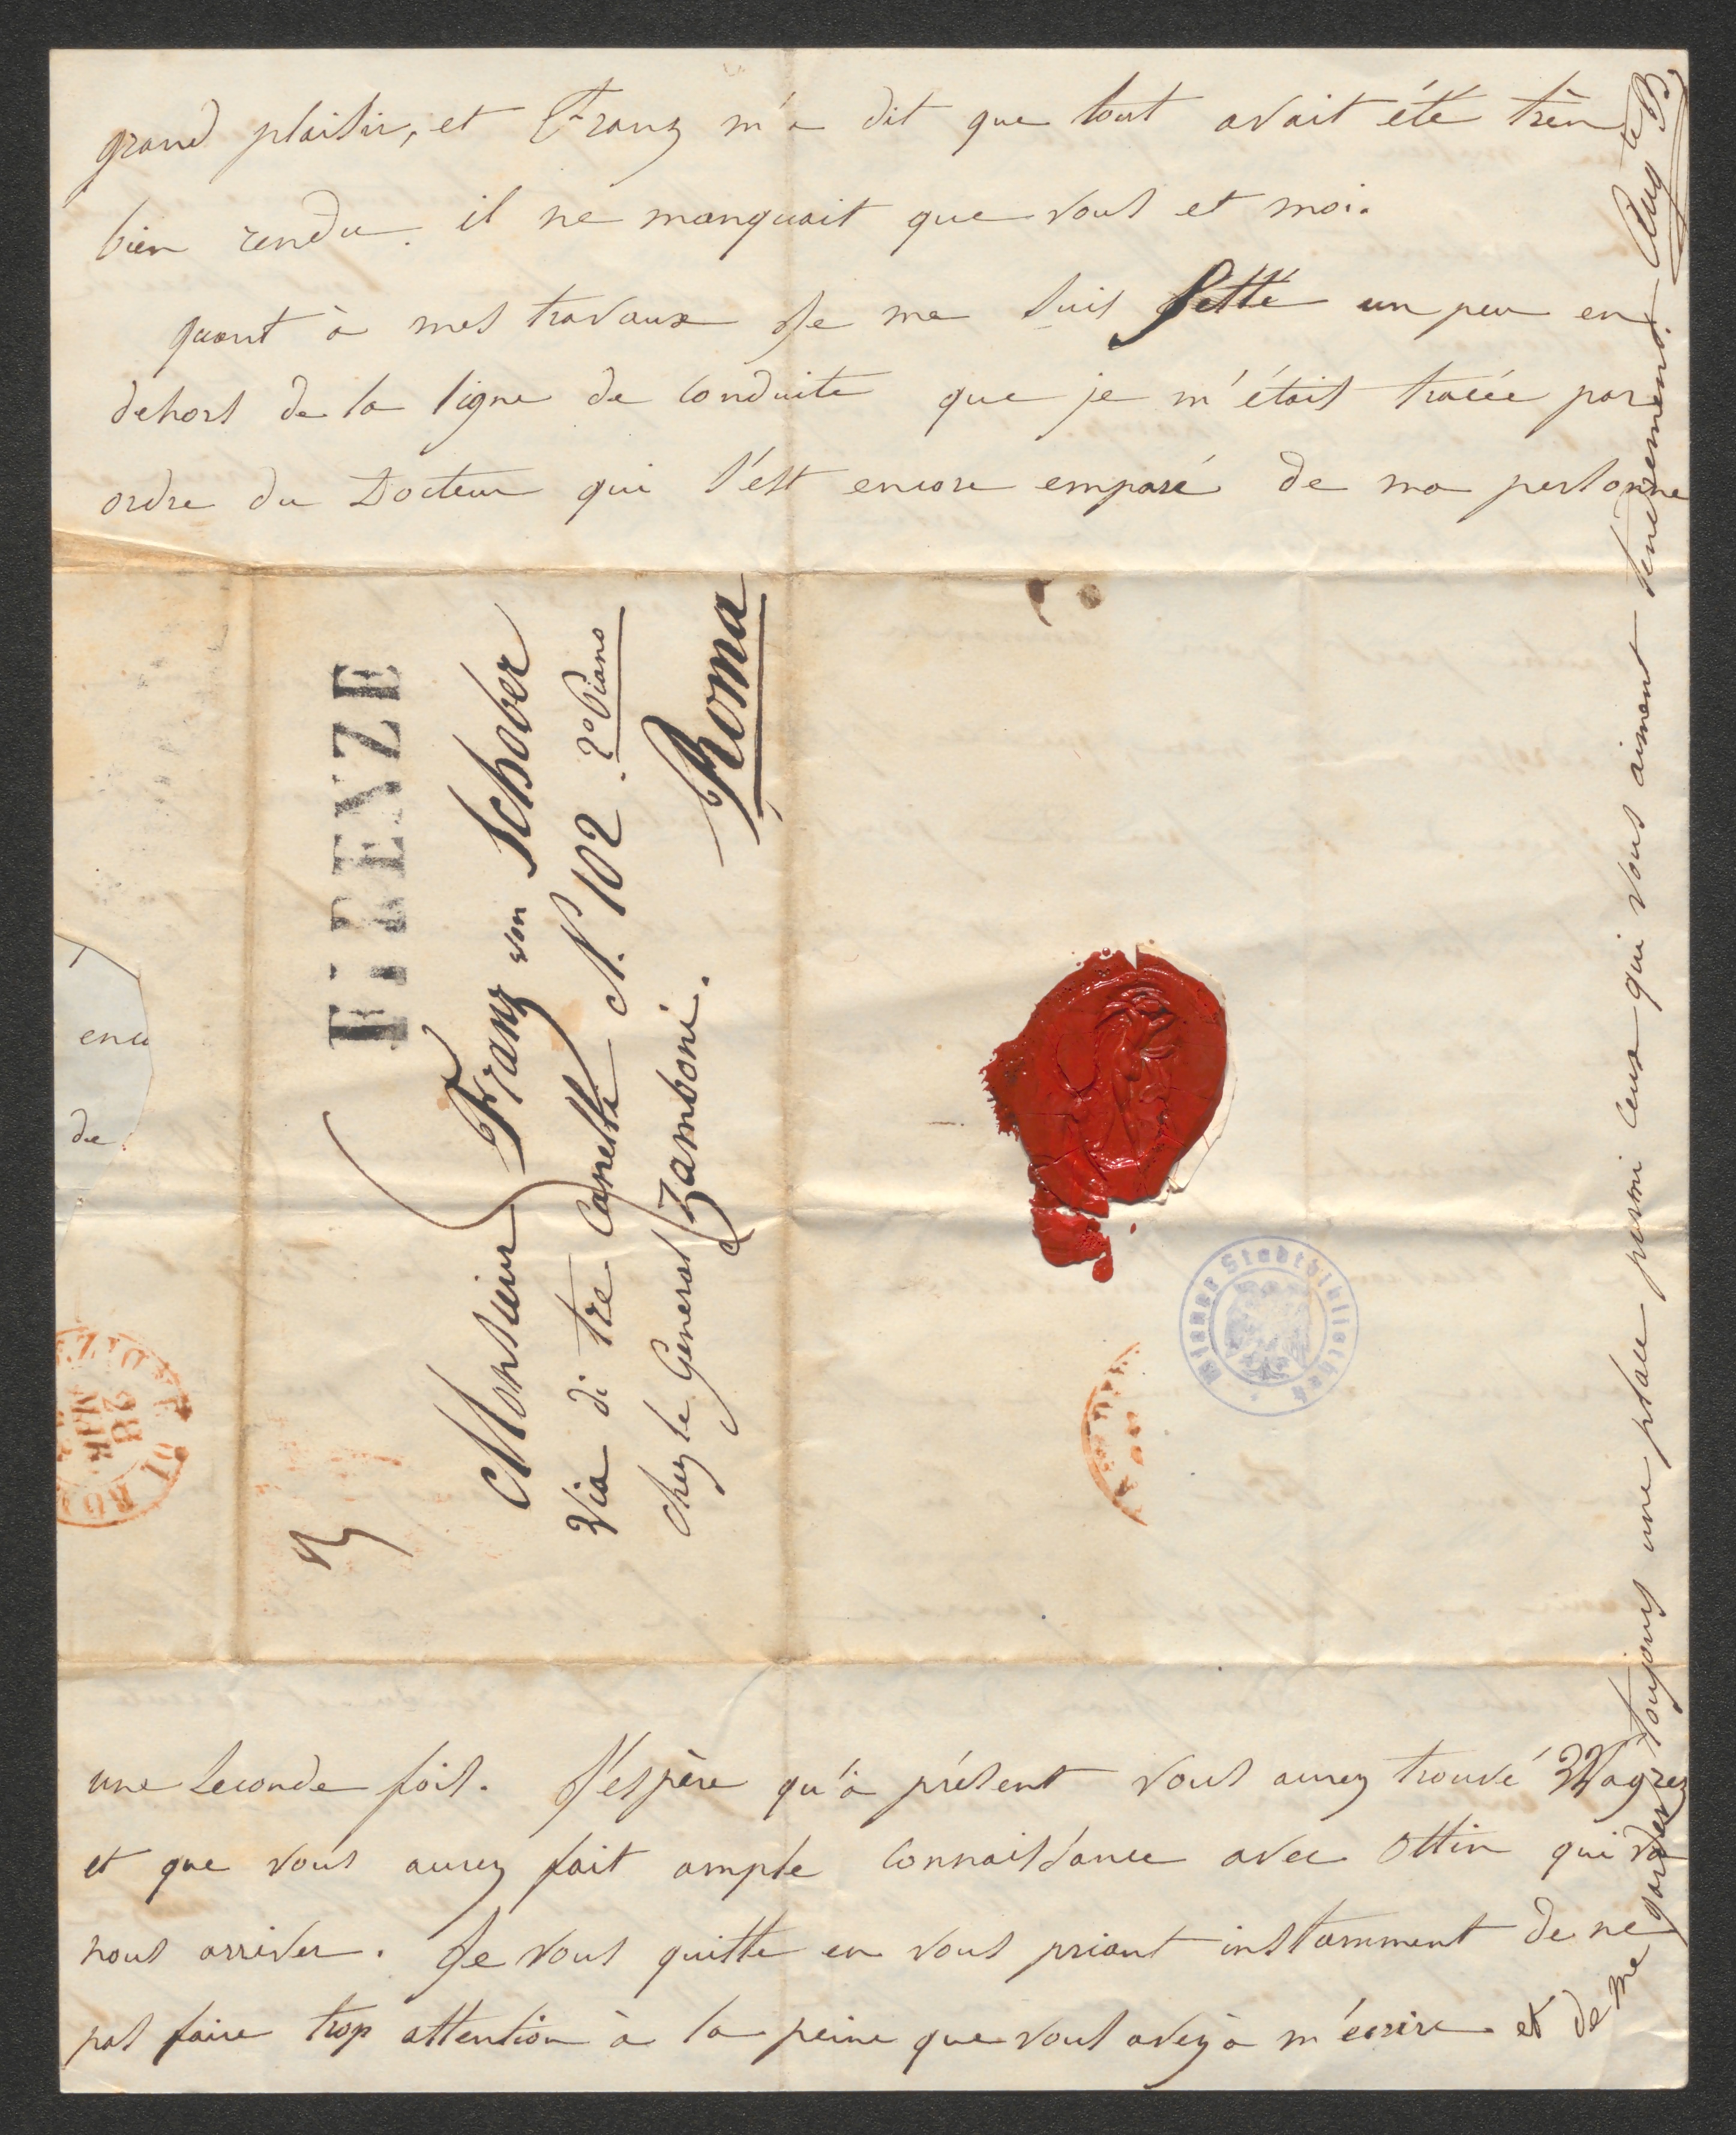 grand plaisir, et Franz m'a dit que tout avait été trèn
bien rendu. il ne manquait que vous et moi.
quant à mes travaux Je me suis Jetté un peu en
dehors de la ligne de conduite que je m'étais tracée par
ordre du Docteur qui s'est encore emparé de ma personne
FIRENZE
Monsieur Franz von Schober
Via di tre Canelle N. 102. 2º Piano
chez le General Zamboni.
Roma
encu
de
28
MAR
Wiener Stadtbibliothek
une seconde fois. J'espère qu'à présent vous aurez trouvé Wagrez
et que vous aurez fait ample connaissance avec Ottin qui va
nous arriver. Je vous quitte en vous priant instamment de ne
pas faire trop attention à la peine que vous avez à m'écrire et de me
garder toujours une place parmi ceux qui vous aiment tendrement. Aug te B.